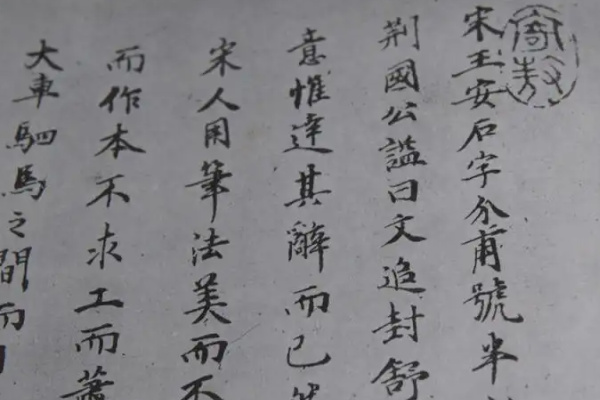 宋王安石字介甫號半
荆國公謚曰文追封舒
意惟達其辭而已
宋人用筆法美而不
而作本不求工而蕭
大車駟馬之間而